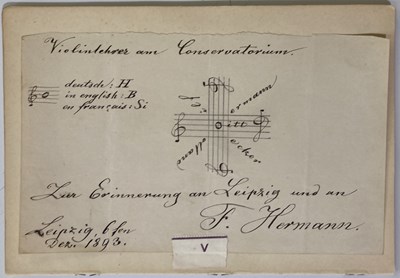 Violinlehrer am Conservatorium.
deutsch: H
in english: B
en français: Si
ilf
ermann
itt
ecker
Zur Erinnerung an Leipzig und an
F. Hermann.
Leipzig, 6ten
Dez. 1893.
V